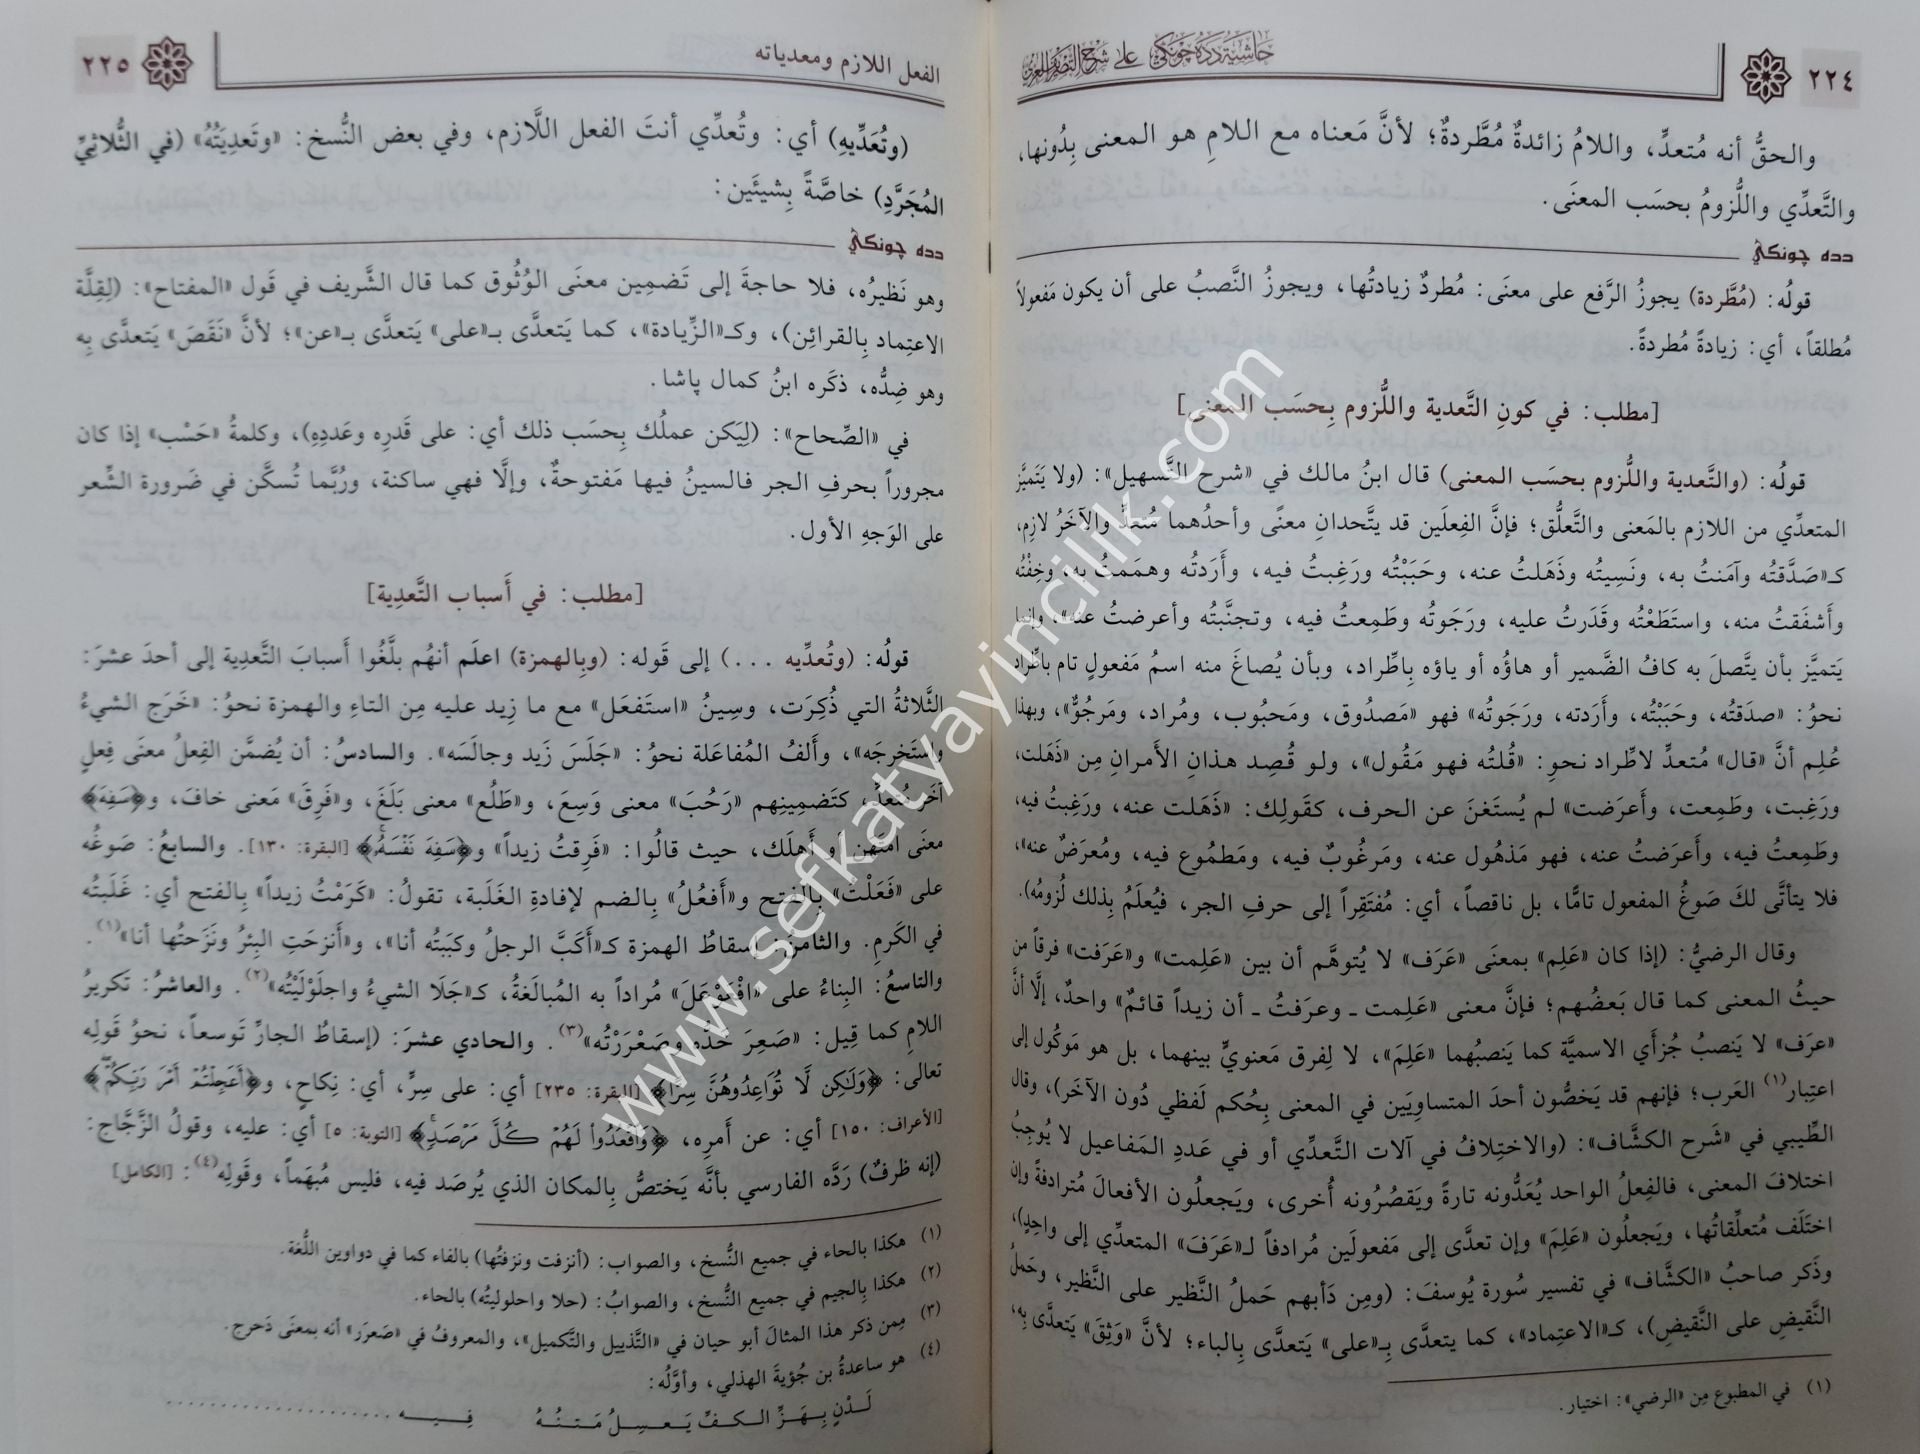 ٢٢٤
حاشية دده جونكي على شرح التصريف العزي
والحقُّ أنه مُتعدٍّ، واللامُ زائدةٌ مُطَّردةٌ؛ لأنَّ مَعناه مع اللامِ هو المعنى بِدُونها،
والتَّعدِّي واللُّزومُ بحسَب المعنَى.
دده چونكي
قولُه: (مُطَّردة) يجوزُ الرَّفع على معنَى: مُطردٌ زيادتُها، ويجوزُ النَّصبُ على أن يكون مَفعولاً
مُطلقاً، أي: زيادةً مُطردةً.
[مطلب: في كونِ التَّعدية واللُّزوم بِحسَب المعنى]
قولُه: (والتَّعدية واللُّزوم بحسَب المعنى) قال ابنُ مالك في «شرح التَّسهيل»: (ولا يَتَميَّز
المتعدِّي من اللازم بالمَعنى والتَّعلُّق؛ فإنَّ الفِعلَين قد يتَّحدانِ معنًى وأحدُهما مُتعدٍّ والآخَرُ لازِم،
كـ«صَدَّقتُه وآمَنتُ به، ونَسِيتُه وذَهَلتُ عنه، وحَبَبْتُه ورَغِبتُ فيه، وأَرَدتُه وهمَمتُ به، وخِفْتُه
وأَشفَقتُ منه، واستَطَعْتُه وقَدَرتُ عليه، ورَجَوتُه وطَمِعتُ فيه، وتجنَّبتُه وأعرضتُ عنه»، وإنما
يَتميَّز بأن يتَّصلَ به كافُ الضَّمير أو هاؤُه أو ياؤه بِاطِّراد، وبأن يُصاغَ منه اسمُ مَفعولٍ تام باطِّراد
نحوُ: «صدَقتُه، وحَبَبْتُه، وأَرَدته، ورَجَوتُه» فهو «مَصدُوق، ومَحبُوب، ومُراد، ومَرجُوٌّ»، وبهذا
عُلِم أنَّ «قال» مُتعدٍّ لاطِّراد نحوِ: «قُلتُه فهو مَقُول»، ولو قُصِد هذانِ الأَمرانِ مِن «ذَهَلت،
ورَغِبت، وطَمِعت، وأَعرَضت» لم يُستَغنَ عن الحرف، كقَولِك: «ذَهَلت عنه، ورَغِبتُ فيه،
وطَمِعتُ فيه، وأَعرَضتُ عنه، فهو مَذهُول عنه، ومَرغُوبٌ فيه، ومَطمُوع فيه، ومُعرَضٌ عنه»،
فلا يتأتَّى لكَ صَوغُ المفعول تامًّا، بل ناقصاً، أي: مُفتَقِراً إلى حرفِ الجر، فيُعلَمُ بِذلك لُزومُه).
وقال الرضيُّ: (إذا كان «عَلِم» بمعنَى «عَرَف» لا يُتوهَّم أن بين «عَلِمت» و«عَرَفت» فرقاً من
حيثُ المعنى كما قال بَعضُهم؛ فإنَّ معنى «عَلِمت ـ وعرَفتُ ـ أن زيداً قائمٌ» واحدٌ، إلَّا أنَّ
«عرَف» لا يَنصبُ جُزأَي الاسميَّة كما يَنصبُهما «عَلِمَ»، لا لِفرق مَعنويٍّ بينهما، بل هو مَوكُول إلى
اعتِبار(١) العَرب؛ فإنهم قد يَخصُّون أحدَ المتساوِيَين في المعنى بِحُكم لَفظي دُون الآخَر)، وقال
الطِّيبي في «شَرح الكشَّاف»: (والاختِلافُ في آلات التَّعدِّي أو في عَددِ المَفاعيل لا يُوجِبُ
اختلافَ المعنى، فالفِعلُ الواحد يُعَدُّونه تارةً ويَقصُرُونه أُخرى، ويَجعلُون الأفعالَ مُترادفةً وإن
اختَلَف مُتعلِّقاتُها، ويَجعلُون «عَلِمَ» وإن تعدَّى إلى مَفعولَين مُرادفاً لـ«عَرَفَ» المتعدِّي إلى واحِدٍ)،
وذَكر صاحبُ «الكشَّاف» في تفسير سُورة يُوسفَ: (ومِن دَأبهم حَملُ النَّظير على النَّظير، وحَملُ
النَّقيضِ على النَّقيضِ)، كـ«الاعتِماد»، كما يتعدَّى بـ«على» يَتعدَّى بِالباء؛ لأنَّ «وَثِقَ» يَتعدَّى بِه،
(١) في المطبوع مِن «الرضي»: اختيار.
الفعل اللازم ومعدياته
٢٢٥
(وتُعَدِّيهِ) أي: وتُعدِّي أنتَ الفعل اللَّازم، وفي بعض النُّسخ: «وتَعدِيَتُهُ» (في الثُّلاثيِّ
المُجَرَّدِ) خاصَّةً بِشيئَين:
دده چونكي
وهو نَظيرُه، فلا حاجةَ إلى تَضمِين معنَى الوُثُوق كما قال الشَّريف في قَول «المفتاح»: (لِقِلَّة
الاعتِماد بِالقرائِن)، وكـ«الزِّيادة»، كما يَتعدَّى بـ«على» يَتعدَّى بـ«عن»؛ لأنَّ «نَقَصَ» يَتعدَّى بِه
وهو ضِدُّه، ذكَره ابنُ كمال پاشا.
في «الصِّحاح»: (لِيَكن عملُك بِحسَب ذلك أي: على قَدرِه وعَددِهِ)، وكلمةُ «حَسْب» إذا كان
مجروراً بحرفِ الجر فالسينُ فيها مَفتوحةٌ، وإلَّا فهي ساكنة، ورُبَّما تُسكَّن في ضَرورة الشِّعر
على الوَجهِ الأول.
[مطلب: في أَسباب التَّعدِية]
قولُه: (وتُعدِّيه ...) إلى قَوله: (وبِالهمزة) اعلَم أنهُم بلَّغُوا أَسبابَ التَّعدِية إلى أحدَ عشرَ:
الثَّلاثةُ التي ذُكِرَت، وسِينُ «استَفعَل» مع ما زِيد عليه مِن التاءِ والهمزة نحوُ: «خَرَج الشيءُ
واستَخرجَه»، وأَلفُ المُفاعَلة نحوُ: «جَلَسَ زَيد وجالَسَه». والسادسُ: أن يُضمَّن الفِعلُ معنَى فِعلٍ
آخَرَ مُتعدٍّ، كتَضمِينِهم «رَحُبَ» معنى وَسِعَ، و«طَلُع» معنى بَلَغَ، و«فَرِقَ» مَعنى خافَ، و﴿سَفِهَ﴾
معنَى امتَهن أو أَهلَك، حيث قالُوا: «فَرِقتُ زيداً» و﴿سَفِهَ نَفْسَهُۥ﴾ [البقرة: ١٣٠]. والسابعُ: صَوغُه
على «فَعَلْت» بِالفتح و«أَفعُلُ» بِالضم لإفادةِ الغَلَبة، تقولُ: «كَرَمْتُ زيداً» بِالفتح أي: غَلَبتُه
في الكَرمِ. والثامنُ: إسقاطُ الهمزة كـ«أَكَبَّ الرجلُ وكبَبتُه أنا»، و«أَنزحَتِ البِئرُ ونَزَحتُها أنا»(١).
والتاسعُ: البِناءُ على «افْعَوْعَلَ» مُراداً به المُبالَغةُ، كـ«جَلَا الشيءُ واجلَوْلَيْتُه»(٢). والعاشرُ: تَكريرُ
اللامِ كما قِيل: «صَعِرَ خَدُّه وصَعْرَرْتُه»(٣). والحادي عشرَ: (إسقاطُ الجارِّ تَوسعاً، نحوُ قَولِه
تعالى: ﴿وَلَٰكِن لَّا تُوَاعِدُوهُنَّ سِرًّا﴾ [البقرة: ٢٣٥] أي: على سِرٍّ، أي: نِكاحٍ، و﴿أَعَجِلْتُمْ أَمْرَ رَبِّكُمْ﴾
[الأعراف: ١٥٠] أي: عن أَمرِه، ﴿وَاقْعُدُوا لَهُمْ كُلَّ مَرْصَدٍ﴾ [التوبة: ٥] أي: عليه، وقولُ الزَّجَّاج:
(إنه ظرفٌ) رَدَّه الفارسي بأنَّه يَختصُّ بِالمكان الذي يُرصَد فيه، فليس مُبهَماً، وقَولِه(٤): [الكامل]
(١) هكذا بالحاء في جميع النُّسخ، والصواب: (أنزفت ونزفتُها) بالفاء كما في دواوين اللُّغة.
(٢) هكذا بِالجيم في جميع النُّسخ، والصوابُ: (حلا واحلوليتُه) بالحاء.
(٣) مِمن ذكر هذا المثالَ أبو حيان في «التَّذييل والتَّكميل»، والمعروفُ في «صَعرَر» أنه بمعنَى دَحرج.
(٤) هو ساعدةُ بن جُؤيةَ الهذلي، وأوَّلُه:
لَدْنٍ بِهَزِّ الكفِّ يَعسِلُ مَتنُهُ فِيهِ ......................
www.sefkatyayincilik.com